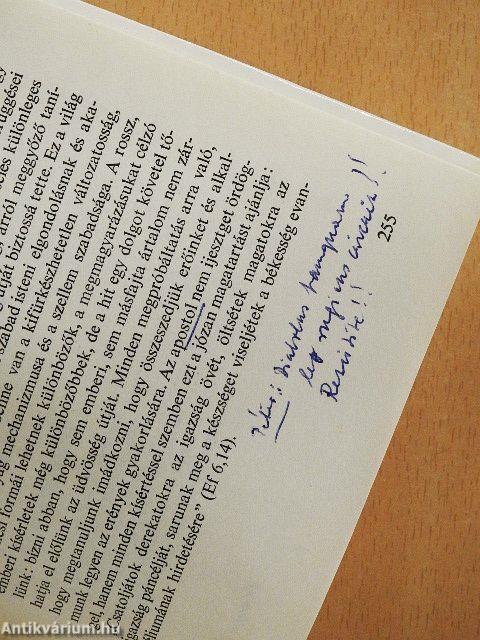 függései
elés különleges
arról meggyőző taní-
útját biztossá tette. Ez a világ
szabad isteni elgondolásnak és aka-
benne van a kifürkészhetetlen változatosság,
mechanizmusa és a szellem szabadsága. A rossz,
formái lehetnek különbözők, a megmagyarázásukat célzó
emberi kísérletek még különbözőbbek, de a hit egy dolgot követel tő-
lünk: bízni abban, hogy sem emberi, sem másfajta ártalom nem zár-
hatja el előlünk az üdvösség útját. Minden megpróbáltatás arra való,
hogy megtanuljunk imádkozni, hogy összeszedjük erőinket és alkal-
munk legyen az erények gyakorlására. Az apostol nem ijesztget ördög-
gel, hanem minden kísértéssel szemben ezt a józan magatartást ajánlja:
csatoljátok derekatokra az igazság övét, öltsétek magatokra az
igazság páncélját, sarunak meg a készséget viseljétek a békesség evan-
díumának hirdetésére” (Ef 6,14).
Diabolus tamquam
leo rugiens
Resistite!!
255
Antikvárium.hu